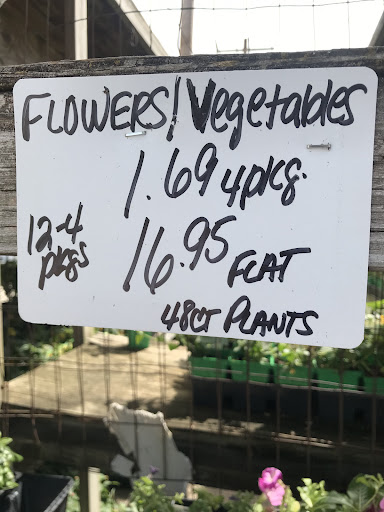 FLOWERS/Vegetables
1.69 4pkg.
12-4 pkgs
16.95 FLAT
48CT PLANTS